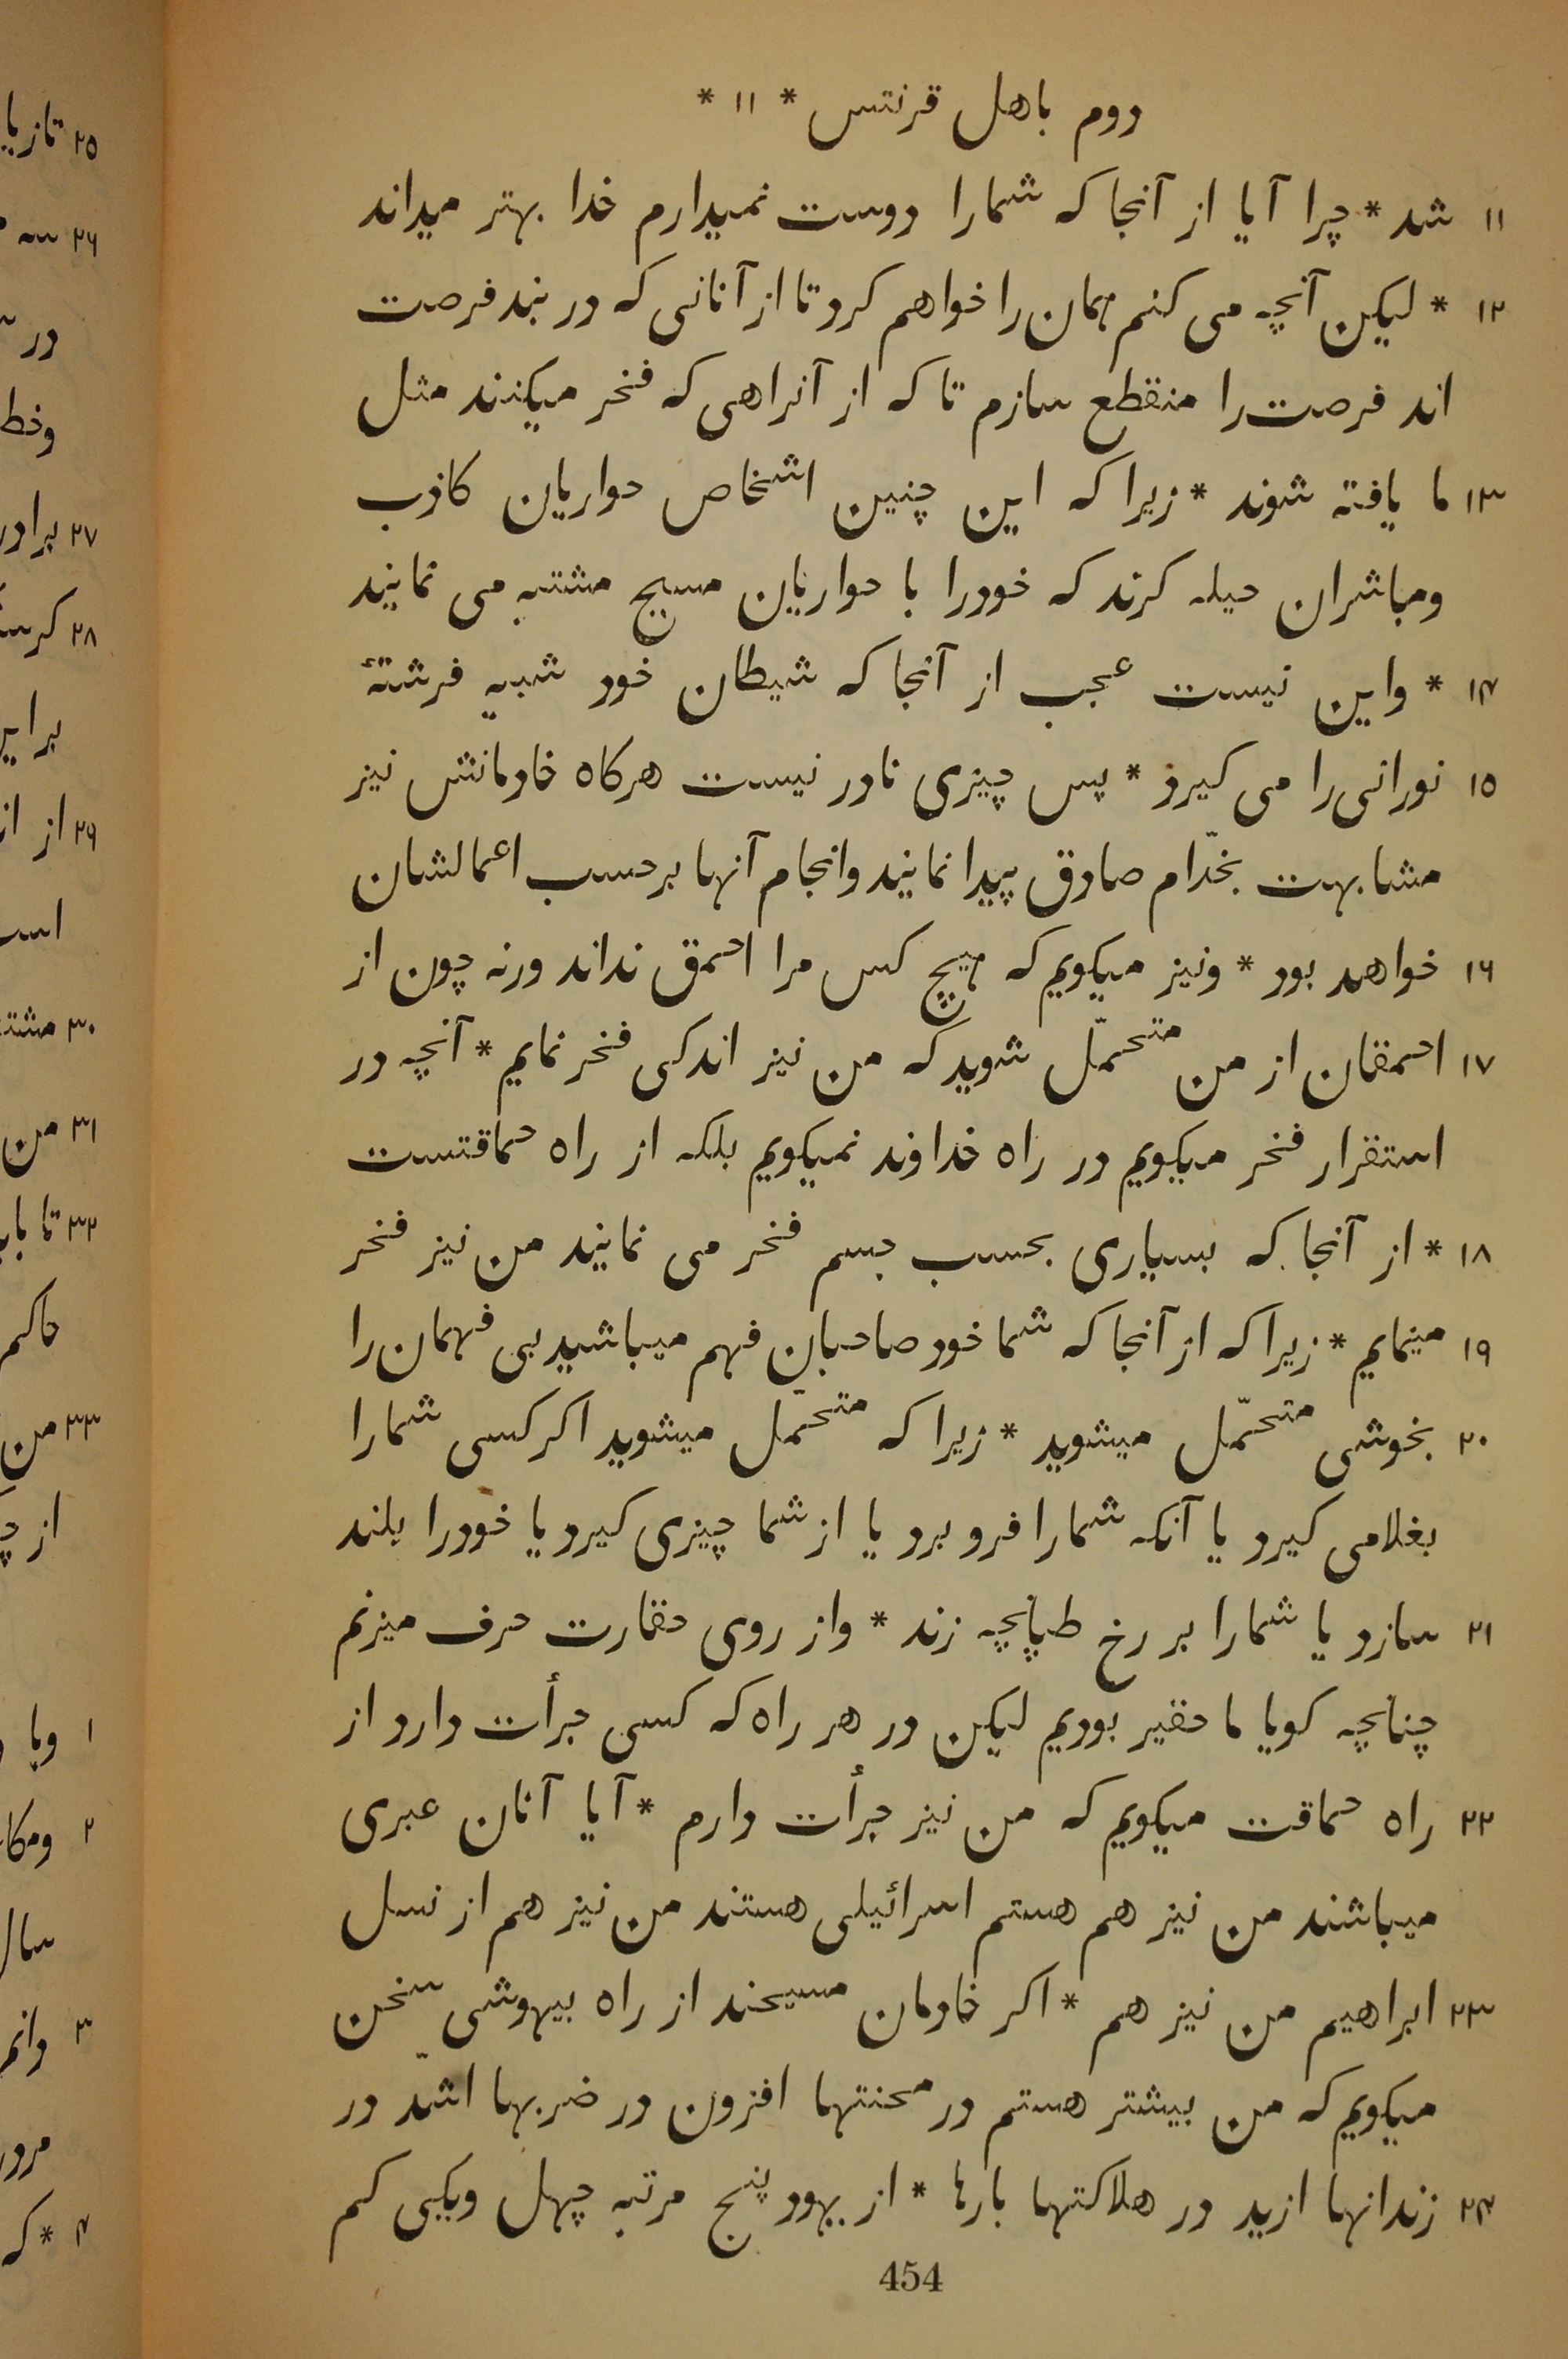 دوم باهل قرنتس * ۱۱ *
۱۱ شد * چرا آیا از آنجا که شمارا دوست نمیدارم خدا بهتر میداند
۱۲ * لیکن آنچه می کنم همان را خواهم کرد تا از آنانی که در بند فرصت
اند فرصت را منقطع سازم تا که از آنراهی که فخر میکنند مثل
۱۳ ما یافته شوند * زیرا که این چنین اشخاص حواریان کاذب
ومباشران حیله کرند که خودرا با حواریان مسیح مشتبه می نمایند
۱۴ * واین نیست عجب از آنجا که شیطان خود شبیه فرشتهٔ
۱۵ نورانی را می کیرد * پس چیزی نادر نیست هرکاه خادمانش نیز
مشابهت بخدّام صادق پیدا نمایند وانجام آنها برحسب اعمالشان
۱۶ خواهد بود * ونیز میکویم که هیچ کس مرا احمق نداند ورنه چون از
۱۷ احمقان از من متحمّل شوید که من نیز اندکی فخر نمایم * آنچه در
استقرار فخر میکویم در راه خداوند نمیکویم بلکه از راه حماقتست
۱۸ * از آنجا که بسیاری بحسب جسم فخر می نمایند من نیز فخر
۱۹ مینمایم * زیرا که از آنجا که شما خود صاحبان فهم میباشید بی فهمان را
۲۰ بخوشی متحمّل میشوید * زیرا که متحمّل میشوید اکر کسی شمارا
بغلامی کیرد یا آنکه شمارا فرو برد یا از شما چیزی کیرد یا خودرا بلند
۲۱ سازد یا شمارا بر رخ طپانچه زند * واز روی حقارت حرف میزنم
چنانچه کویا ما حقیر بودیم لیکن در هر راه که کسی جرأت دارد از
۲۲ راه حماقت میکویم که من نیز جرأت دارم * آیا آنان عبری
میباشند من نیز هم هستم اسرائیلی هستند من نیز هم از نسل
۲۳ ابراهیم من نیز هم * اکر خادمان مسیحند از راه بیهوشی سخن
میکویم که من بیشتر هستم در محنتها افزون در ضربها اشدّ در
۲۴ زندانها ازید در هلاکتها بارها * از یهود پنج مرتبه چهل ویکی کم
454
۲۵ تازیا
۲۶ سه
در
وخط
۲۷ برادر
۲۸
برای
۲۹ از
است
۳۰
۳۱ من
۳۲ تا
حاکم
۳۳ من
از
۱ ویا
۲
سال
۳
۴ * که